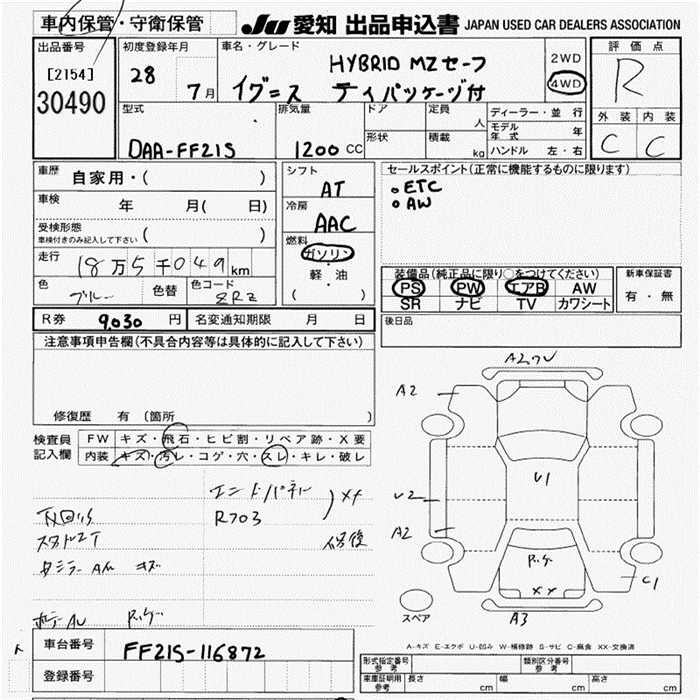 車内保管・守衛保管
JU 愛知 出品申込書 JAPAN USED CAR DEALERS ASSOCIATION
出品番号
[2154]
30490
初度登録年月
28
7月
車名・グレード
HYBRID MZセーフ
イグニス ティパッケージ付
2WD
4WD
評価点
R
型式
DAA-FF21S
排気量
1200 CC
ドア
形状
定員
人
積載
kg
ディーラー・並行
モデル年式 年
ハンドル 左・右
外装
C
内装
C
車歴
自家用・( )
車検
年 月( 日)
受検形態
車検付きのみ記入して下さい ( )
走行
18万5千049km
色
ブルー
色替
色コード
ZRZ
シフト
AT
冷房
AAC
燃料
ガソリン
軽・油
( )
セールスポイント(正常に機能するものに限ります)
ETC
AW
装備品(純正品に限り○をつけてください)
PS PW エアB AW
SR ナビ TV カワシート
新車保証書
有・無
R券 9,030 円
名変通知期限 月 日
後日品
注意事項申告欄(不具合内容等は具体的に記入して下さい)
修復歴 有 〔箇所 〕
検査員
記入欄
FW キズ・飛石・ヒビ割・リペア跡・X要
内装 キズ・汚レ・コゲ・穴・スレ・キレ・破レ
エンドパネル XX
R703
修後
下回りS
キズ
A2
A2
U2
A2
U1
XX
C1
A3
スペア
A-キズ E-エクボ U-凹み W-補修跡 S-サビ C-腐食 XX-交換済
車台番号
FF21S-116872
登録番号
形式指定番号 参考
類別区分番号 参考
車庫証明用 参考
長さ cm
幅 cm
高さ cm